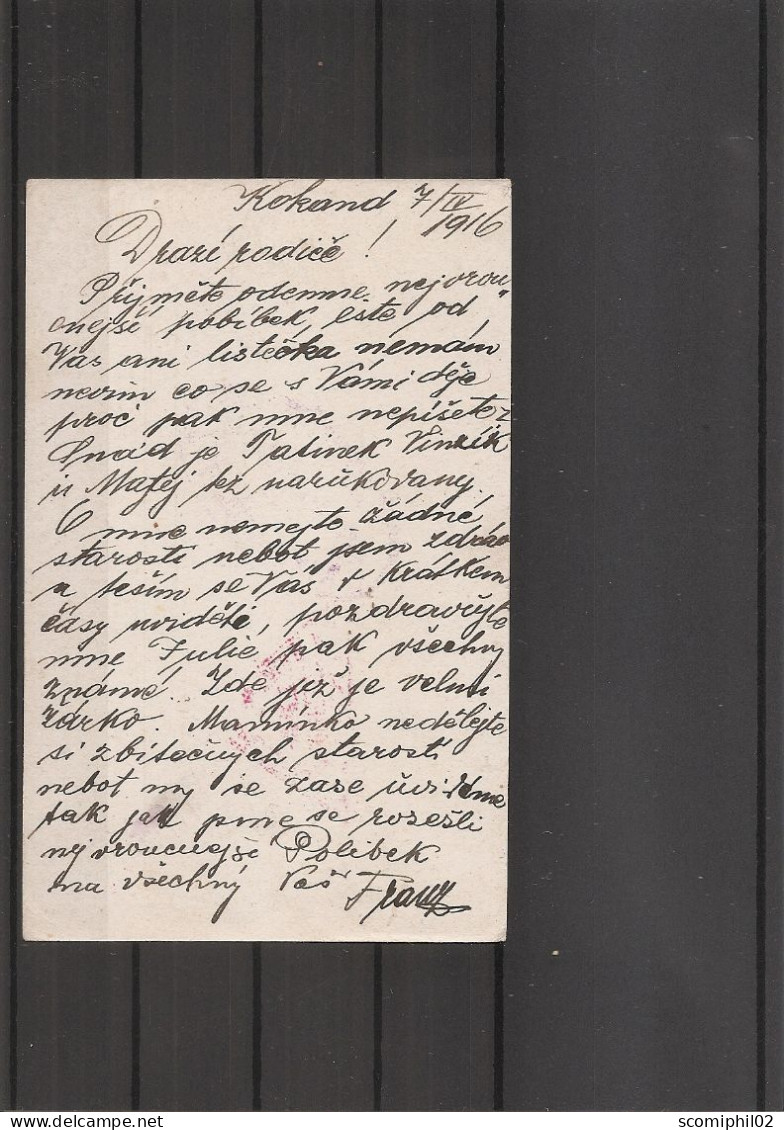 Kokand 7/IV
1916
Drazí rodiče!
Přijměte odemne nejvrou„
cnejší pobíbek, este od
Vas ani listečka nemám
nevim co se s Vámi děje
proč pak mne nepíšete z
Snád je Tatinek Vinzik
u Matej tez narukovany.
O mne nemejte žádné
starosti nebot jsem zdráv
a teším se Vás v Krátkém
časy uviděti, pozdravujte
mne Julie, pak všechny
známé. Zde již je velmi
žárko. Mamínko nedělejte
si zbitečných starostí
nebot my se zase uvidíme
tak jak sme se rosešli
nejvroucnejší Polibek
na všechny Vaš Franz
scomiphil02